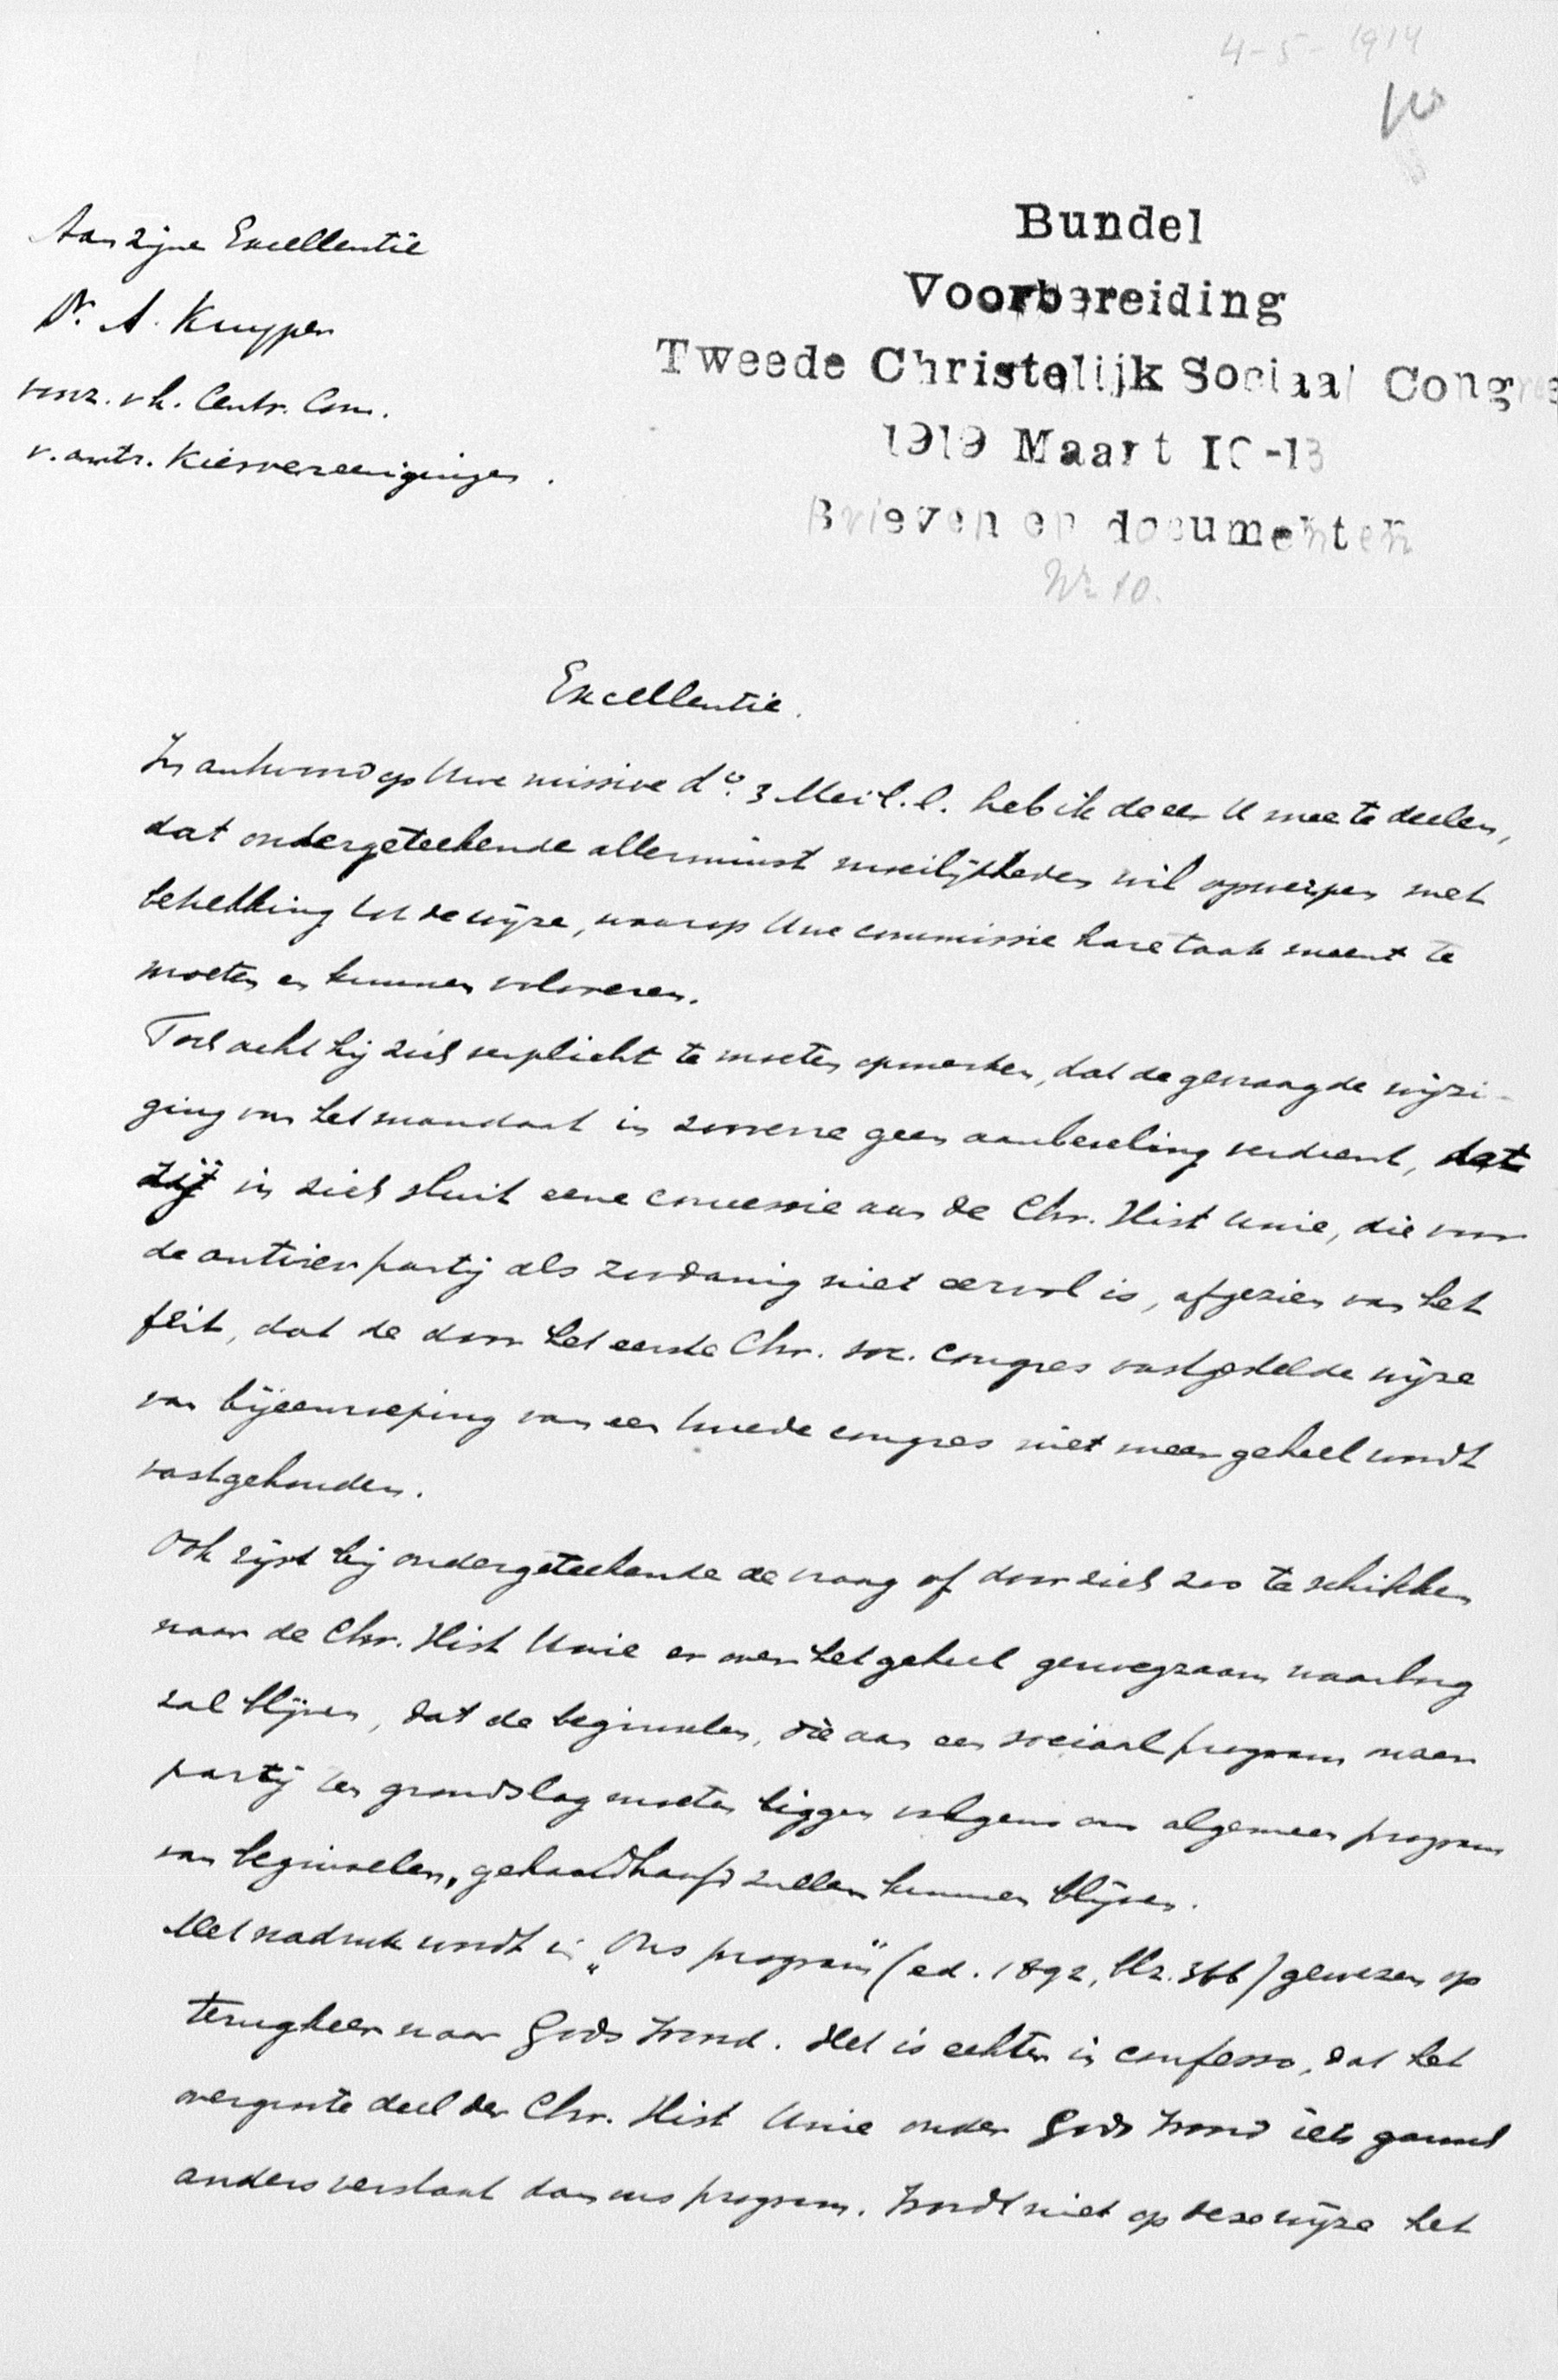 4-5-1914
Aan Zijne Excellentie
Dr. A. Kuyper
voorz. v h. Centr. Com.
v. antir. Kiesvereenigingen.
Bundel
Voorbereiding
Tweede Christelijk Sociaal Congres
1919 Maart 10-13
Brieven en documenten
Nr 10.
Excellentie.
In antwoord op Uwe missive do. 3 Mei l.l. heb ik de eer U mee te deelen,
dat ondergeteekende allerminst moeilijkheden wil opwerpen met
betrekking tot de wijze, waarop Uwe commissie hare taak meent te
moeten en kunnen volvoeren.
Toch acht hij zich verplicht te moeten opmerken, dat de gevraagde wijzi-
ging van het mandaat in zooverre geen aanbeveling verdient, dat
zij in zich sluit eene concessie aan de Chr. Hist Unie, die voor
de antirev partij als zoodanig niet eervol is, afgezien van het
feit, dat de door het eerste Chr. soc. congres vastgestelde wijze
van bijeenroeping van een tweede congres niet meer geheel wordt
vastgehouden.
Ook rijst bij ondergeteekende de vraag of door zich zoo te schikken
naar de Chr. Hist Unie er over het geheel genoegzaam waarborg
zal blijven, dat de beginselen, die aan een sociaal program onzer
partij ten grondslag moeten liggen volgens ons algemeen program
van beginselen, gehandhaafd zullen kunnen blijven.
Met nadruk wordt in „Ons program" (ed. 1892, blz. 366) gewezen op
terugkeer naar Gods Woord. Het is echter in confesso, dat het
overgroote deel der Chr. Hist Unie onder Gods Woord iets gansch
anders verstaat dan ons program. Wordt niet op deze wijze het